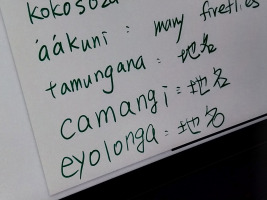 kokosoza
áákuni : many fireflies
tamungana : 地名
camangi : 地名
eyolonga : 地名